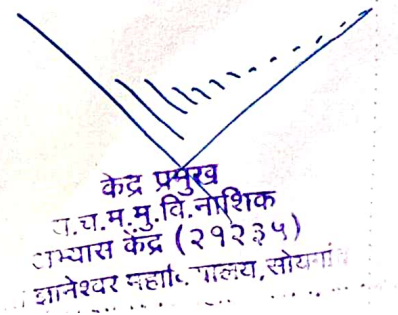 केंद्र प्रमुख
य.च.म.मु.वि.नाशिक
अभ्यास केंद्र (२१२३५)
ज्ञानेश्वर महाविद्यालय, सोयगांव